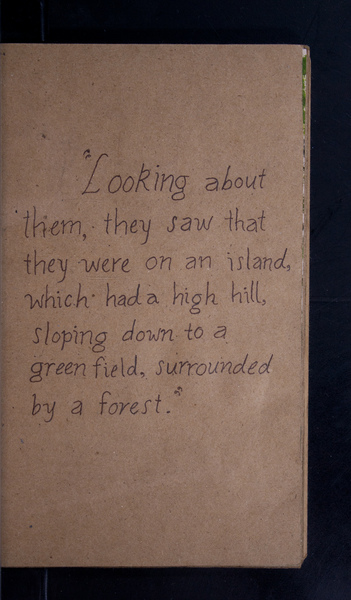 "Looking about
them, they saw that
they were on an island,
which had a high hill,
sloping down to a
green field, surrounded
by a forest."